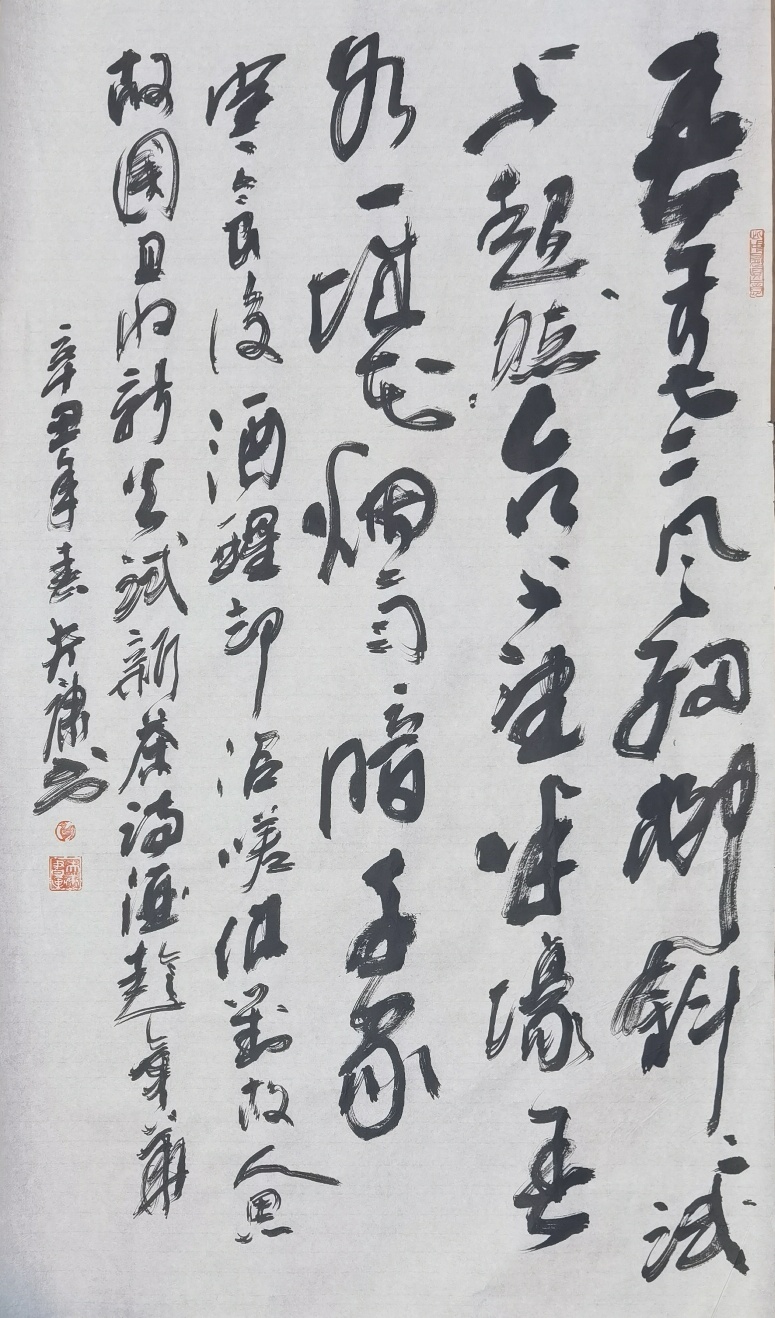 春未老风細柳斜〻試
上超然台上望半壕春
水一城花烟雨暗千家
寒食後酒醒却咨嗟休對故人思
故國且将新火試新茶詩酒趁年華
辛丑年春